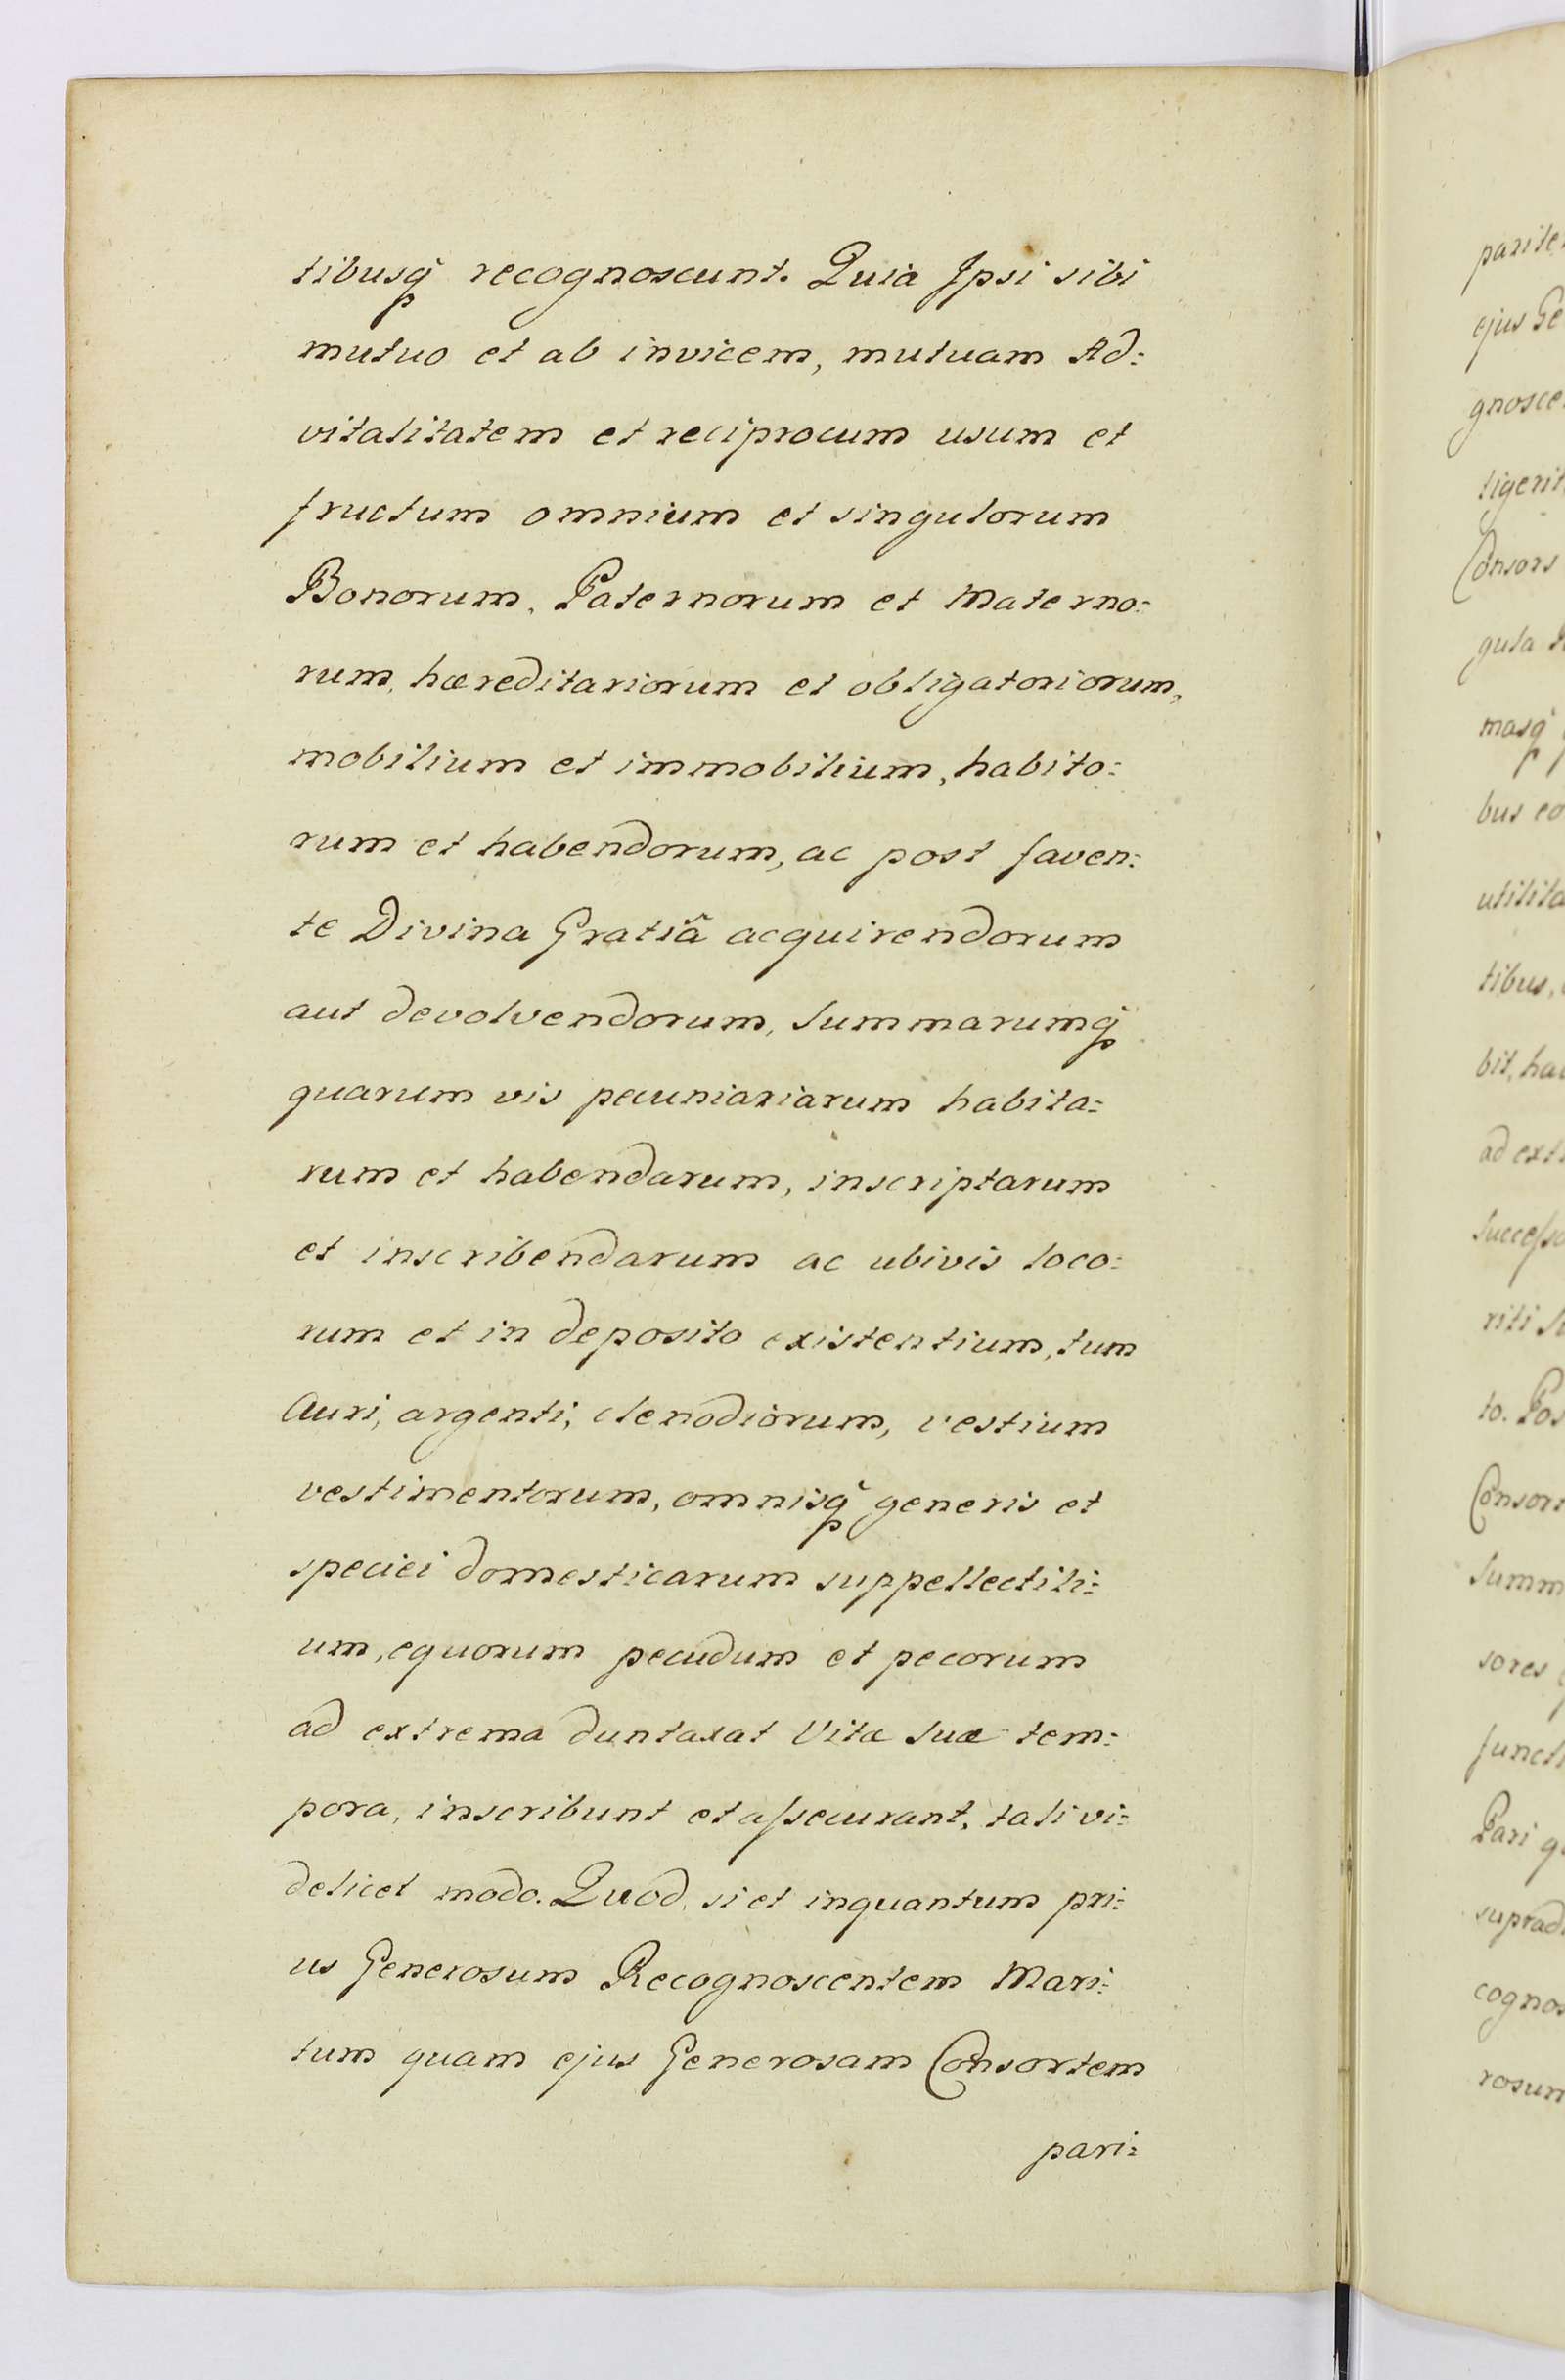 tibusq́ recognoscunt. Quia Ipsi sibi
mutuo et ab invicem, mutuam Ad:
vitalitatem et reciprocum usum et
fructum omnium et singulorum
Bonorum, Paternorum et Materno:
rum, hæreditariorum et obligatoriorum,
mobilium et immobilium, habito:
rum et habendorum, ac post faven:
te Divina Gratiâ acquirendorum
aut devolvendorum, Summarumq́
quarum vis pecuniariarum habita:
rum et habendarum, inscriptarum
et inscribendarum ac ubivis loco:
rum et in deposito existentium, tum
Auri, argenti, clenodiorum, vestium
vestimentorum, omnisq́ generis et
speciei domesticarum suppellectili:
um, equorum pecudum et pecorum
ad extrema duntaxat Vitæ suæ tem:
pora, inscribunt et aſsecurant, tali vi:
delicet modo. Quod, si et inquantum pri:
us Generosum Recognoscentem Mari:
tum quam ejus Generosam Consortem
pari:
parite
ejus Ge
gnosce
tigerit
Consors
gula
masq́
bus eo
utilita
tibus,
bit, ha
ad ext
Succeſso
riti
to. Pos
Consor
Summ
sores
functi
Pari
suprad
cognos
rosum